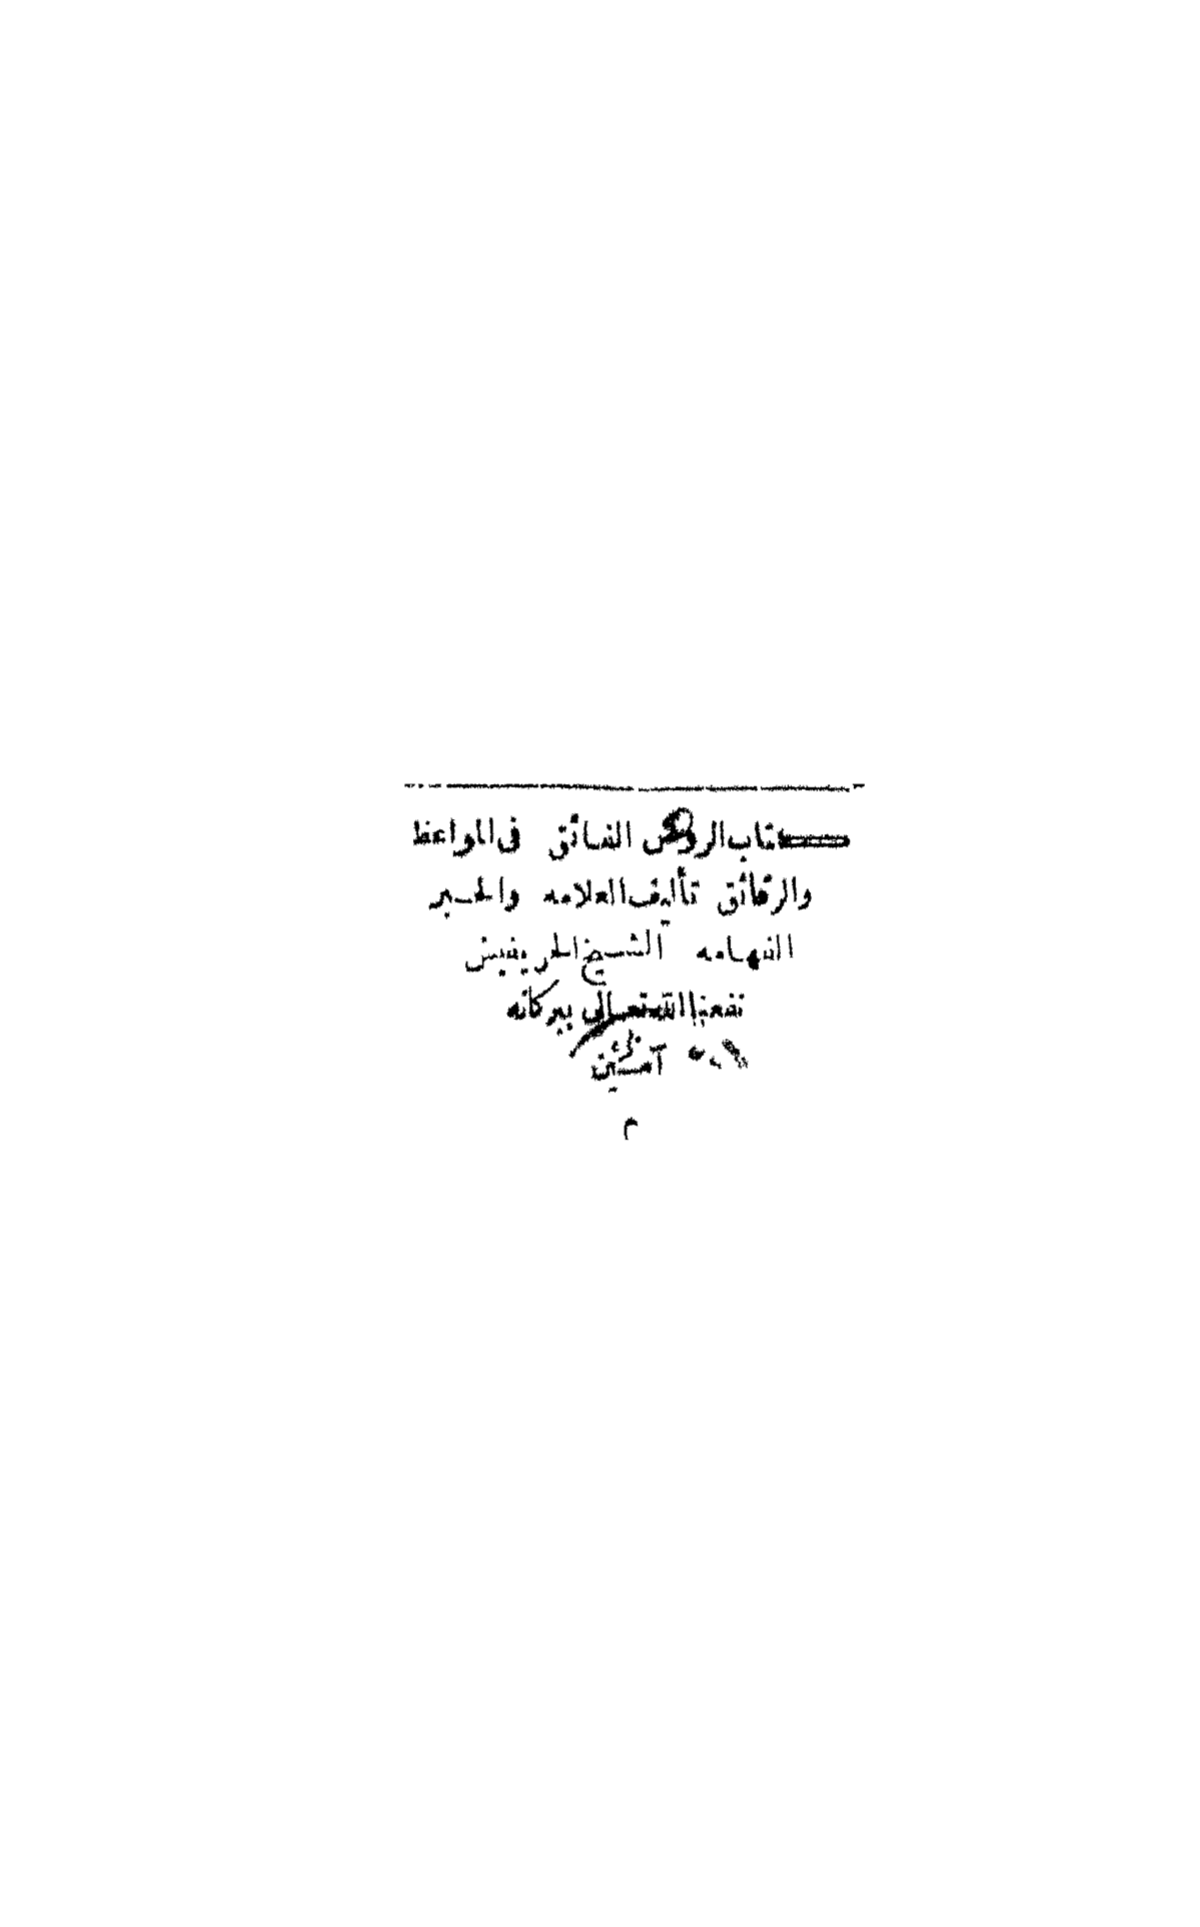 كتاب الروض الفائق في المواعظ
والرقائق تأليف العلامه والحبر
الفهامه الشيخ الحريفيش
نفعنا الله تعالى ببركاته
آمين
م